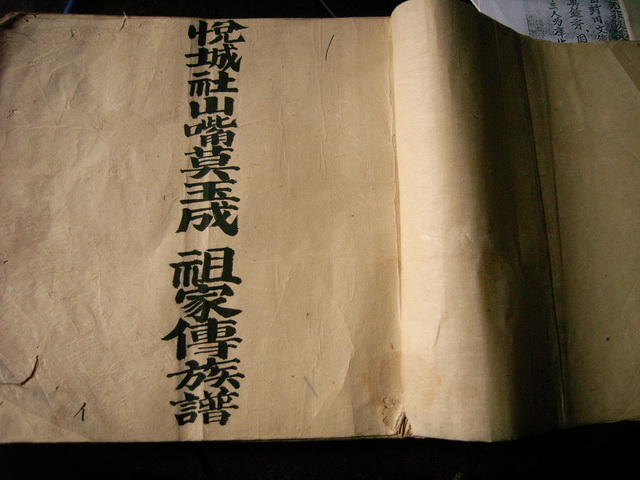 悅城社山嘴莫玉成 祖家傳族譜